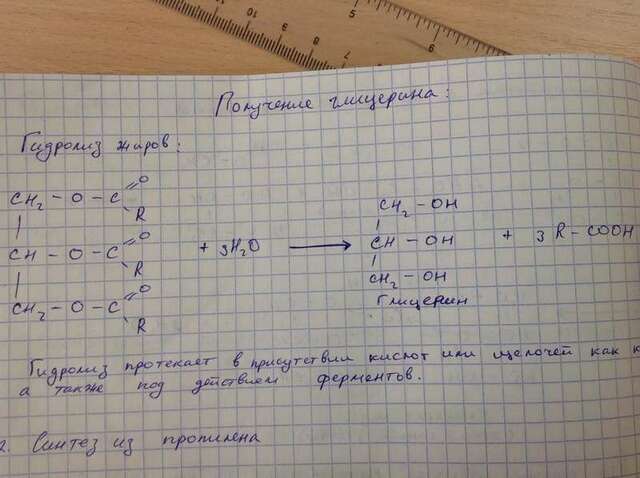 Получение глицерина:
Гидролиз жиров:
CH₂ – O – C =O R
CH – O – C =O R + 3H₂O ⟶
CH₂ – O – C =O R
CH₂ – OH
CH – OH + 3 R – COOH
CH₂ – OH
Глицерин
Гидролиз протекает в присутствии кислот или щелочей как к
а также под действием ферментов.
2. Синтез из пропилена
10 9 8 7
5 6